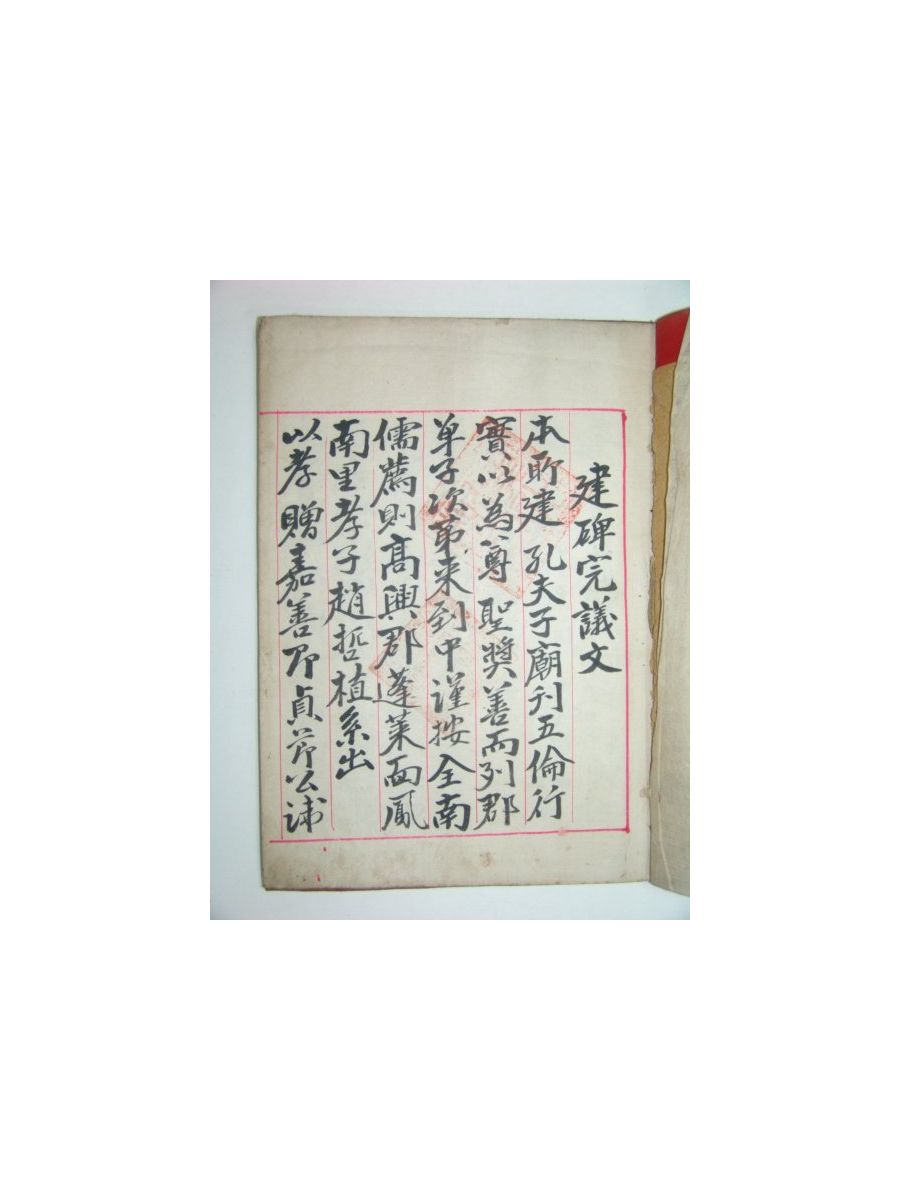 建碑完議文
本所建 孔夫子廟刊五倫行
實以為尊 聖奬善而列郡
单子次第來到中謹按全南
儒薦則高興郡蓬萊面鳳
南里孝子趙哲植系出
以孝 贈嘉善即貞節公